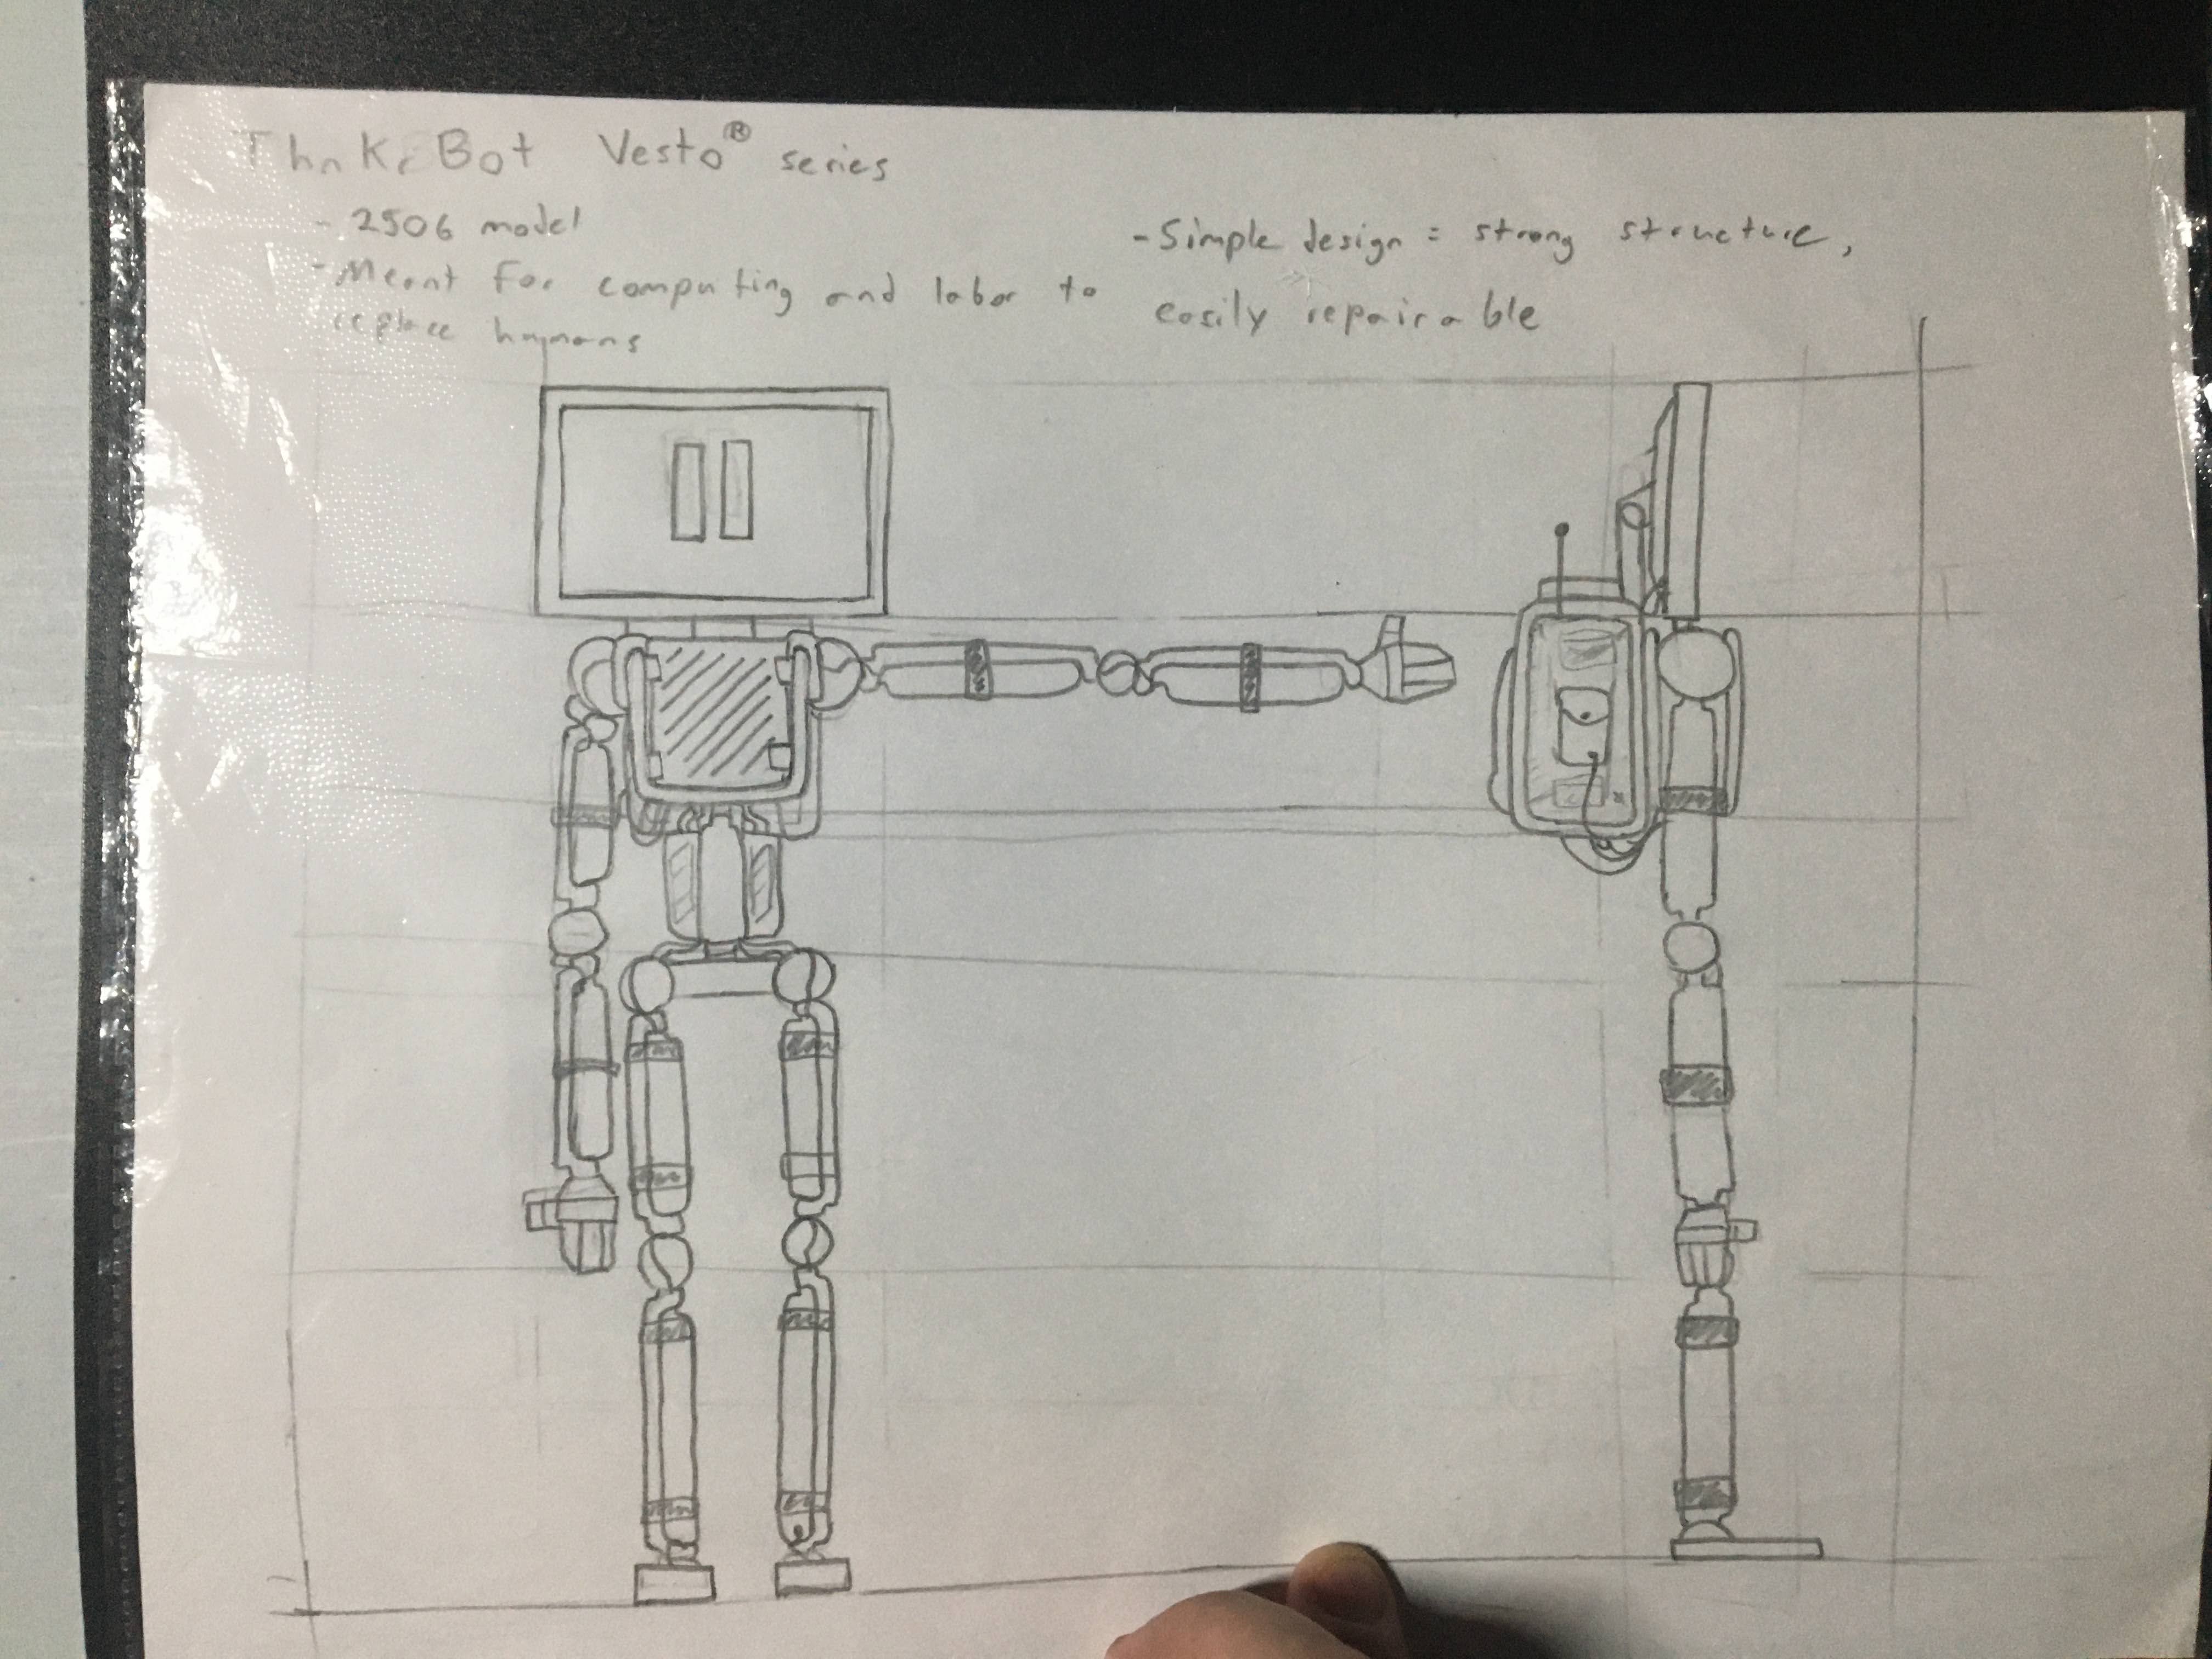 ThnKrBot Vesto® series
- 2506 model
- Meant for computing and labor to
replace humans
- Simple design = strong structure,
easily repairable